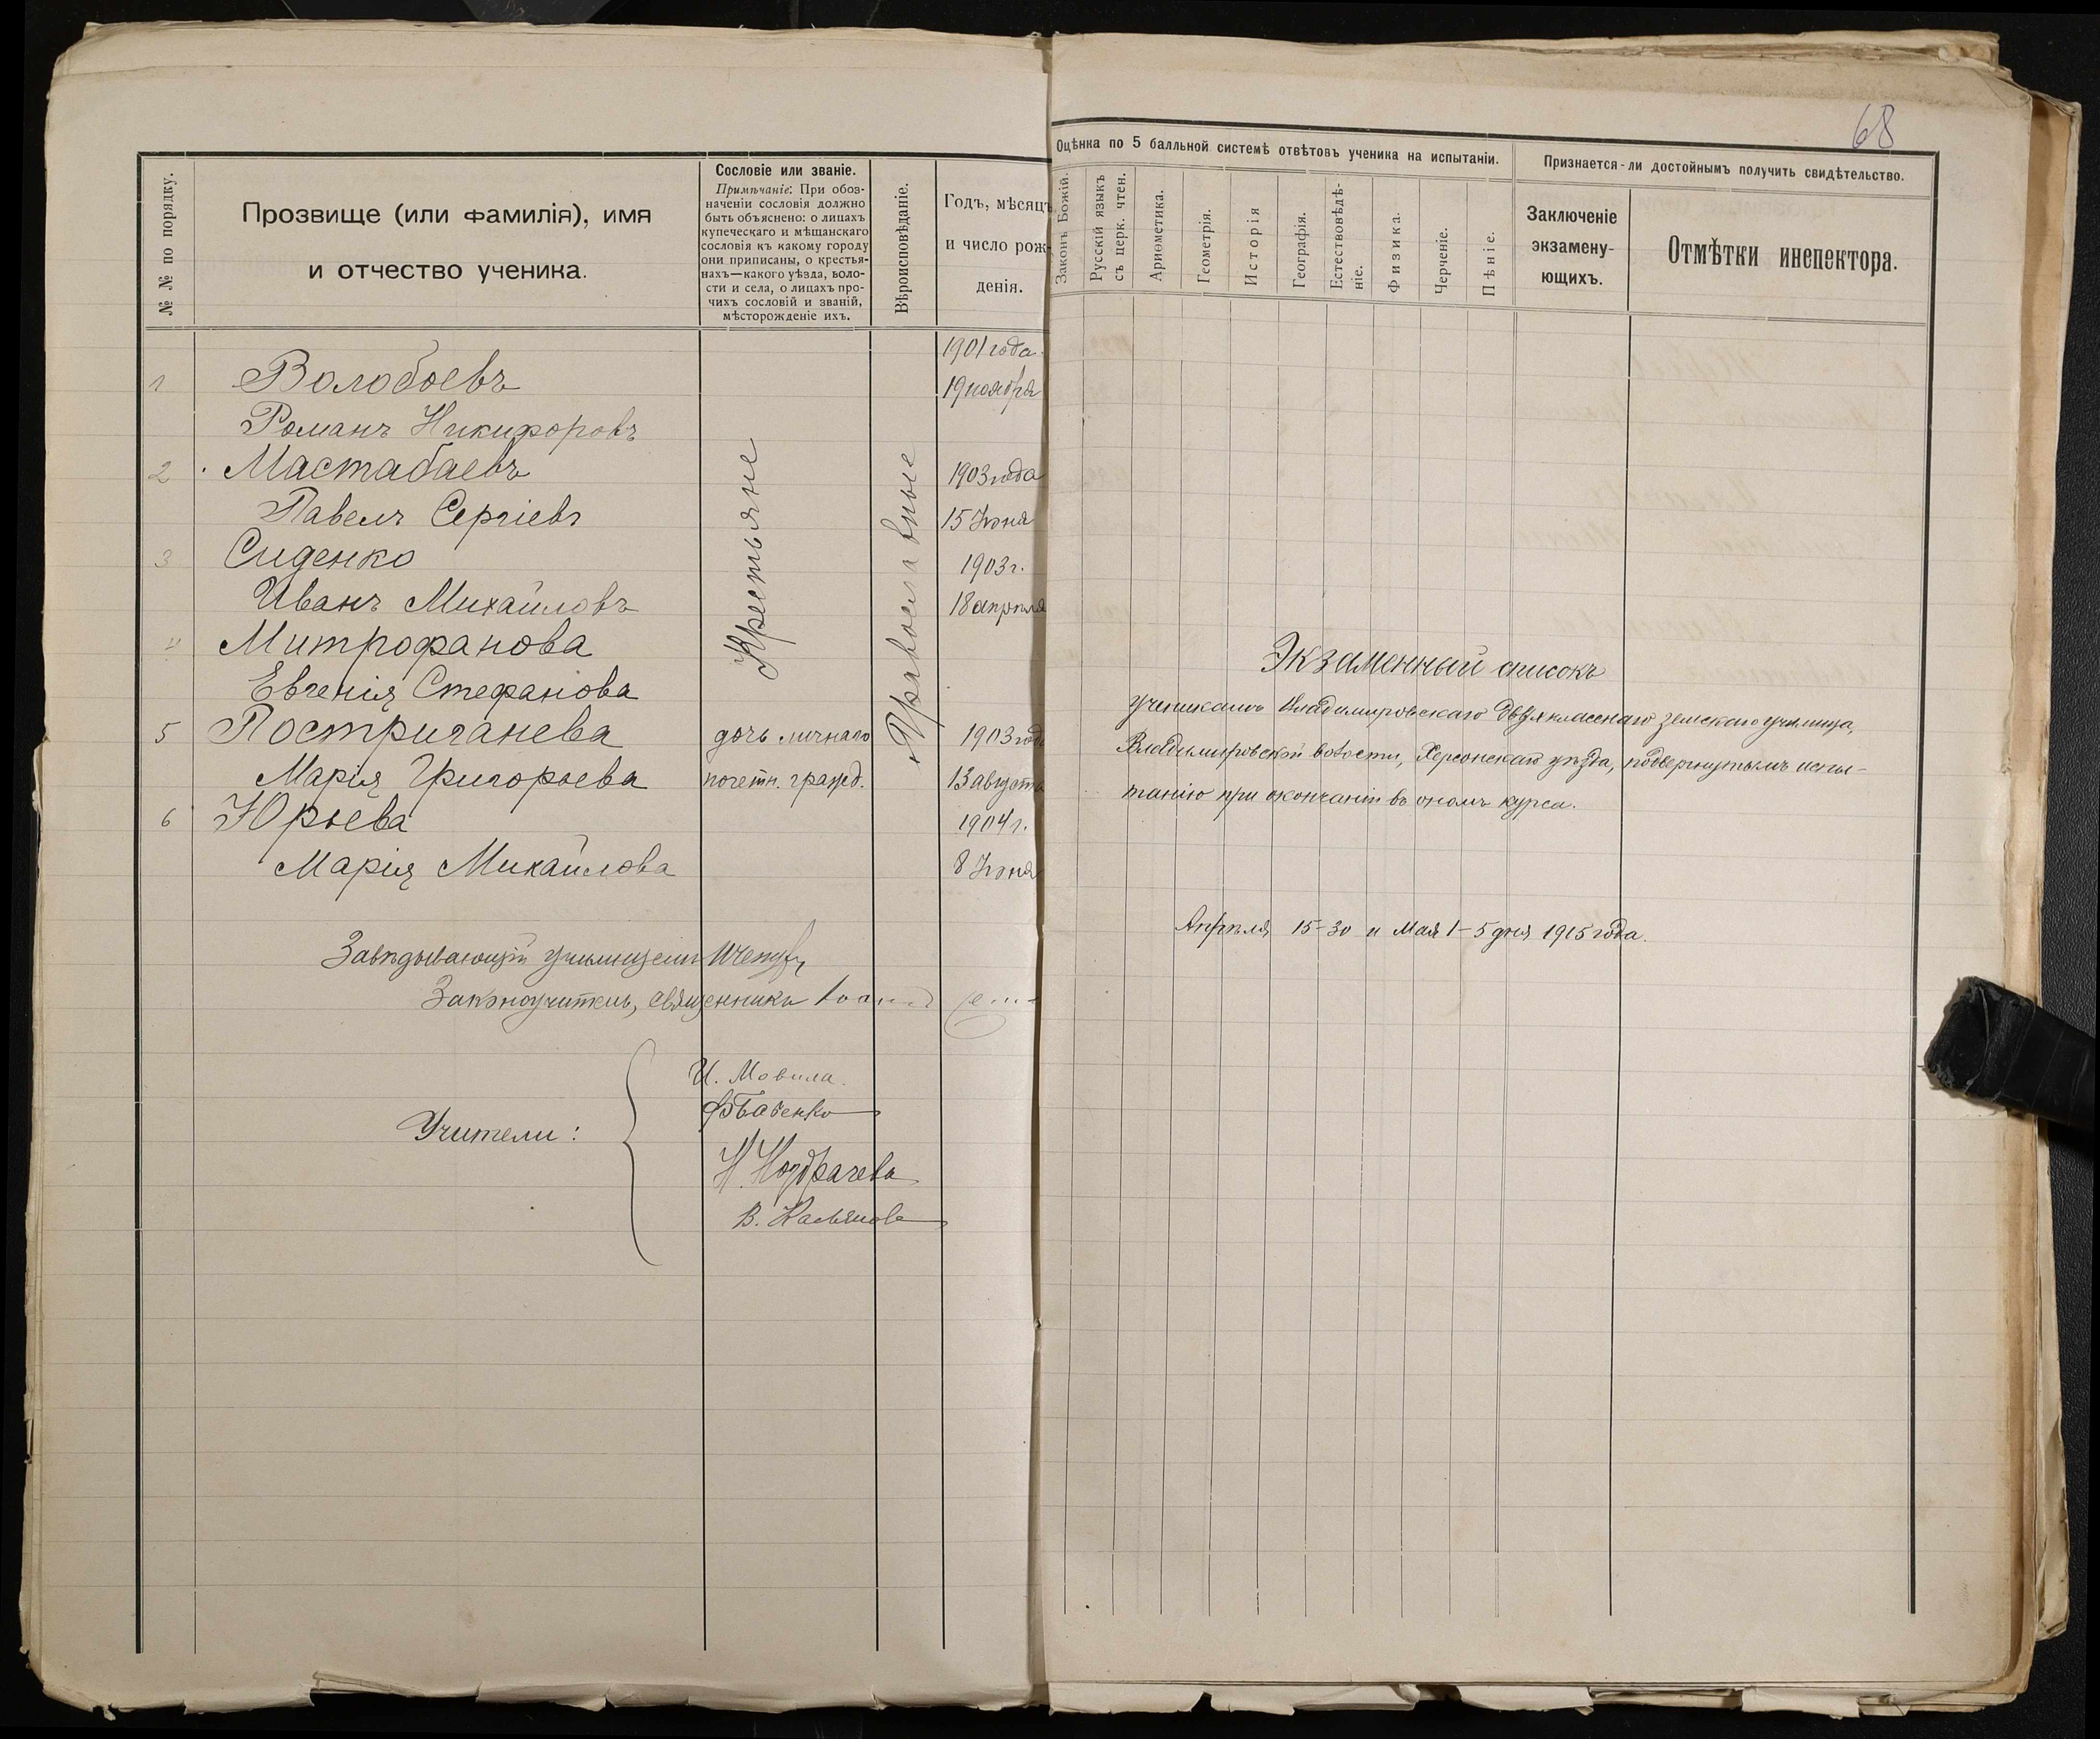 68
№ № по порядку.
Прозвище (или фамилія), имя
и отчество ученика.
Сословіе или званіе.
Примѣчаніе: При обоз-
наченіи сословія должно
быть объяснено: о лицахъ
купеческаго и мѣщанскаго
сословія къ какому городу
они приписаны, о крестья-
нахъ—какого уѣзда, воло-
сти и села, о лицахъ про-
чихъ сословій и званій,
мѣсторожденіе ихъ.
Вѣроисповѣданіе.
Годъ, мѣсяцъ
и число рож-
денія.
Оцѣнка по 5 балльной системѣ отвѣтовъ ученика на испытаніи.
Законъ Божій.
Русскій языкъ
съ церк. чтен.
Ариѳметика.
Геометрія.
Исторія
География.
Естествовѣдѣ-
ніе.
Физика.
Черченіе.
Пѣніе.
Признается-ли достойнымъ получить свидѣтельство.
Заключеніе
экзамену-
ющихъ.
Отмѣтки инспектора.
1901 года
1 Волобоевъ 19 ноября
Романъ Никифоровъ
2 Мастабаевъ 1903 года
Павелъ Сергіевъ 15 Іюня
3 Сиденко 1903 г.
Иванъ Михайловъ 18 апрѣля
4 Митрофанова
Евгенія Стефанова
Крестьяне
Православные
5 Постриганева дочь личнаго 1903 года
Марія Григорьева почетн. гражд. 13 августа
6 Юрьева 1904 г.
Марія Михайлова 8 Іюня
Завѣдывающій училищемъ
Законоучитель, священникъ
Учители:
И. Мовила.
Бабенко
Н. Ноздрачева
В. Касьянова
Экзаменный списокъ
ученикамъ Владимировскаго двухкласснаго земскаго училища,
Владимировской волости, Херсонскаго уѣзда, подвергнутымъ испы-
танію при окончаніи въ ономъ курса.
Апрѣля 15-30 и Мая 1-5 дня 1915 года.